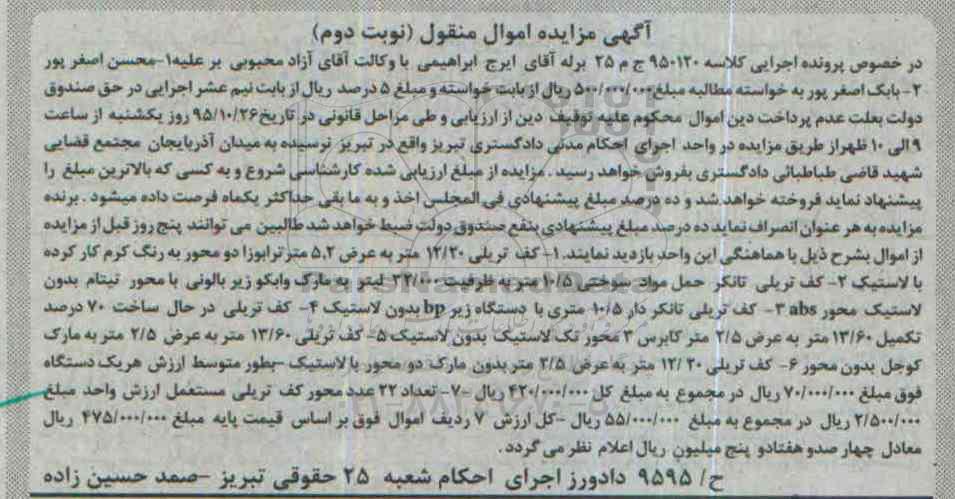 آگهی مزایده اموال منقول (نوبت دوم)
در خصوص پرونده اجرایی کلاسه ۹۵۰۱۲۰ ج م ۲۵ برله آقای ایرج ابراهیمی با وکالت آقای آزاد محبوبی بر علیه۱-محسن اصغر پور
۲- بابک اصغر پور به خواسته مطالبه مبلغ۵۰۰/۰۰۰/۰۰۰ ریال از بابت خواسته و مبلغ ۵ درصد ریال از بابت نیم عشر اجرایی در حق صندوق
دولت بعلت عدم پرداخت دین اموال محکوم علیه توقیف دین از ارزیابی و طی مراحل قانونی در تاریخ۹۵/۱۰/۲۶ روز یکشنبه از ساعت
۹ الی ۱۰ ظهراز طریق مزایده در واحد اجرای احکام مدنی دادگستری تبریز واقع در تبریز نرسیده به میدان آذربایجان مجتمع قضایی
شهید قاضی طباطبائی دادگستری بفروش خواهد رسید . مزایده از مبلغ ارزیابی شده کارشناسی شروع و به کسی که بالاترین مبلغ را
پیشنهاد نماید فروخته خواهد شد و ده درصد مبلغ پیشنهادی فی المجلس اخذ و به ما بقی حداکثر یکماه فرصت داده میشود . برنده
مزایده به هر عنوان انصراف نماید ده درصد مبلغ پیشنهادی بنفع صندوق دولت ضبط خواهد شد طالبین می توانند پنج روز قبل از مزایده
از اموال بشرح ذیل با هماهنگی این واحد بازدید نمایند. ۱- کف تریلی ۱۲/۲۰ متر به عرض ۵,۲ متر ترابوزا دو محور به رنگ کرم کار کرده
با لاستیک ۲- کف تریلی تانکر حمل مواد سوختی ۱۰/۵ متر به ظرفیت ۳۲/۰۰۰ لیتر به مارک وابکو زیر بالونی با محور تیتام بدون
لاستیک محور abs ۳- کف تریلی تانکر دار ۱۰/۵ متری با دستگاه زیر bp بدون لاستیک ۴- کف تریلی در حال ساخت ۷۰ درصد
تکمیل ۱۳/۶۰ متر به عرض ۲/۵ متر کابرس ۳ محور تک لاستیک بدون لاستیک ۵- کف تریلی ۱۳/۶۰ متر به عرض ۲/۵ متر به مارک
کوجل بدون محور ۶- کف تریلی ۱۲/۲۰ متر به عرض ۲/۵ متر بدون مارک دو محور با لاستیک -بطور متوسط ارزش هریک دستگاه
فوق مبلغ ۷۰/۰۰۰/۰۰۰ ریال در مجموع به مبلغ کل ۴۲۰/۰۰۰/۰۰۰ ریال -۷- تعداد ۲۲ عدد محور کف تریلی مستعمل ارزش واحد مبلغ
۲/۵۰۰/۰۰۰ ریال در مجموع به مبلغ ۵۵/۰۰۰/۰۰۰ ریال -کل ارزش ۷ ردیف اموال فوق بر اساس قیمت پایه مبلغ ۴۷۵/۰۰۰/۰۰۰ ریال
معادل چهار صدو هفتادو پنج میلیون ریال اعلام نظر می گردد.
ح/ ۹۵۹۵ دادورز اجرای احکام شعبه ۲۵ حقوقی تبریز -صمد حسین زاده